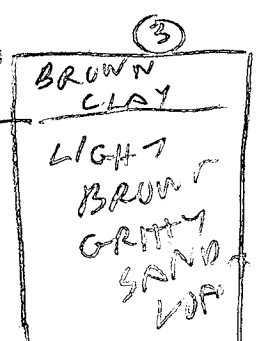 3
BROWN
CLAY
LIGHT
BROWN
GRITTY
SAND